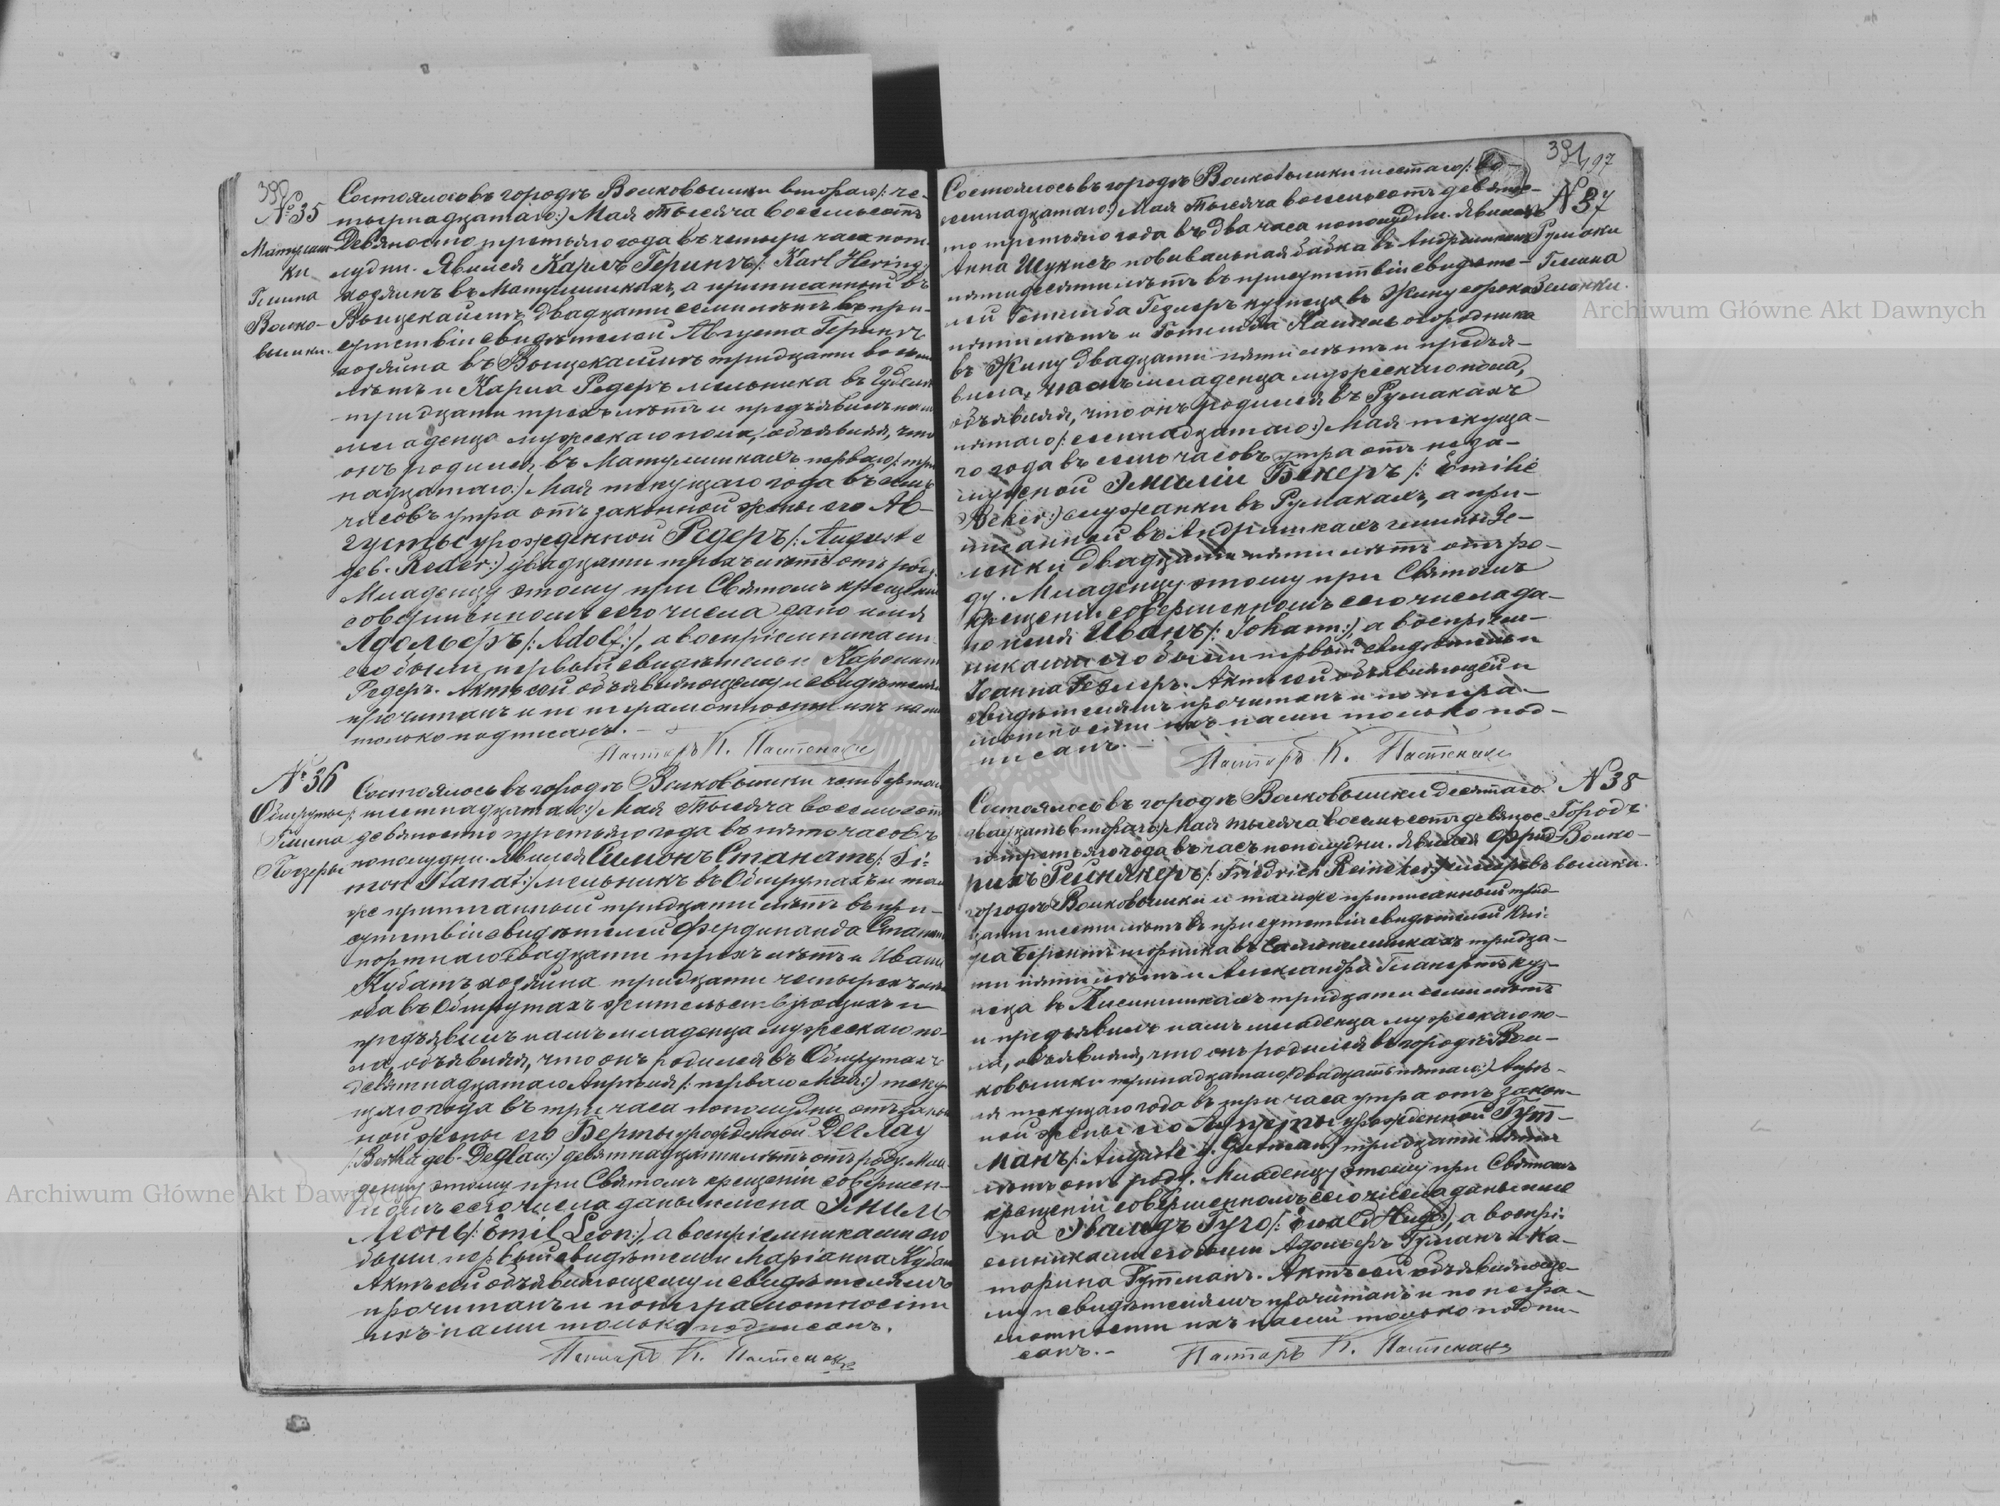 390
№ 35
Матулиш-
ки
Гмина
Волко-
вышки.
Состоялось въ городѣ Волковышки втораго /: че-
тырнадцатаго :/ Мая тысяча восемьсотъ
девяносто третьяго года въ четыре часа попо-
лудни. Явился Карлъ Герингъ /: Karl Hering
хозяинъ въ Матулишкахъ, а приписанный въ
двадцати семи лѣтъ въ при-
сутствіи свидѣтелей Августа Герингъ
хозяина въ тридцати восьми
лѣтъ и Карла Редеръ мельника въ
тридцати трехъ лѣтъ и предъявилъ намъ
младенца мужескаго пола, объявляя, что
онъ родился въ Матулишкахъ перваго /: три-
надцатаго :/ Мая текущаго года въ семь
часовъ утра отъ законной жены его Ав-
густы урожденной Редеръ /: Auguste
geb. Reder :/ двадцати трехъ лѣтъ отъ роду.
Младенцу этому при Святомъ крещеніи
совершенномъ сего числа дано имя
Адольфъ /: Adolf :/, а воспріемниками
его были первый свидѣтель и
Редеръ. Актъ сей объявляющему и свидѣтелямъ
прочитанъ и по неграмотности ихъ нами
только подписанъ. —
Пасторъ К. Пастенаци
№ 36
Обшруты
Гмина
Состоялось въ городѣ Волковышки четвертаго
/: шестнадцатаго :/ Мая тысяча восемьсотъ
девяносто третьяго года въ пять часовъ
пополудни. Явился Симонъ Станатъ /: Si-
mon Stanat :/ мельникъ въ Обшрутахъ и там-
же приписанный тридцати лѣтъ въ при-
сутствіи свидѣтелей Фердинанда Станатъ
портнаго двадцати трехъ лѣтъ и Ивана
Кубатъ хозяина тридцати четырехъ лѣтъ
оба въ Обшрутахъ жительствующихъ и
предъявилъ намъ младенца мужескаго по-
ла, объявляя, что онъ родился въ Обшрутахъ
девятнадцатаго Апрѣля /: перваго Мая :/ теку-
щаго года въ три часа пополудни отъ закон-
ной жены его Берты урожденной Деглау
/: Bertha geb. Deglau :/ девятнадцати лѣтъ отъ роду. Мла-
денцу этому при Святомъ крещеніи совершен-
номъ сего числа даны имена Эмиль
Леонъ /: Emil Leon :/, а воспріемниками его
были первый свидѣтель и Маріанна Кубатъ
Актъ сей объявляющему и свидѣтелямъ
прочитанъ и по неграмотности
ихъ нами только подписанъ.
Пасторъ К. Пастенаци
391
197
№ 37
Румоки
Гмина
Зеленки.
Состоялось въ городѣ Волковышки шестаго /: во-
семнадцатаго :/ Мая тысяча восемьсотъ девянос-
то третьяго года въ два часа пополудни. Явилась
Анна Шукисъ повивальная бабка въ Андришкахъ
пятидесяти лѣтъ въ присутствіи свидѣте-
лей Готлиба Гезлеръ кузнеца въ Жину сорока
пяти лѣтъ и Готлиба огородника
въ Жину двадцати пяти лѣтъ и предъя-
вила намъ младенца мужескаго пола,
объявляя, что онъ родился въ Румакахъ
пятаго /: семнадцатаго :/ Мая текуща-
го года въ семь часовъ утра отъ неза-
мужной Эмиліи Бекеръ /: Emilie
Beker :/ служанки въ Румакахъ, а при-
писанной въ Андришкахъ гмины Зе-
ленки двадцати пяти лѣтъ отъ ро-
ду. Младенцу этому при Святомъ
крещеніи совершенномъ сего числа да-
но имя Иванъ /: Johann :/, а воспріем-
никами его были первый свидѣтель и
Іоанна Гезлеръ. Актъ сей объявляющей и
свидѣтелямъ прочитанъ и по негра-
мотности ихъ нами только под-
писанъ. —
Пасторъ К. Пастенаци
№ 38
Городъ
Волко-
вышки.
Состоялось въ городѣ Волковышки десятаго
/: двадцать втораго :/ Мая тысяча восемьсотъ девянос-
то третьяго года въ часъ пополудни. Явился Фрид-
рихъ Рейнекеръ /: Friedrich Reineker :/ въ
городѣ Волковышки и тамже приписанный трид-
цати шести лѣтъ въ присутствіи свидѣтелей
въ тридца-
ти пяти лѣтъ и Александра куз-
неца въ тридцати семи лѣтъ
и предъявилъ намъ младенца мужескаго по-
ла, объявляя, что онъ родился въ городѣ Вол-
ковышки тринадцатаго /: двадцать пятаго :/ Апрѣ-
ля текущаго года въ три часа утра отъ закон-
ной жены его Августы урожденной Гут-
манъ /: Auguste g. Gutman :/ тридцати пяти
лѣтъ отъ роду. Младенцу этому при Святомъ
крещеніи совершенномъ сего числа даны име-
на Эвальдъ Гуго /: Ewald Hugo :/, а воспрі-
емниками его были Адольфъ Гутманъ и Ка-
тарина Гутманъ. Актъ сей объявляюще-
му и свидѣтелямъ прочитанъ и по негра-
мотности ихъ нами только подпи-
санъ. —
Пасторъ К. Пастенаци
Archiwum Główne Akt Dawnych
Archiwum Główne Akt Dawnych